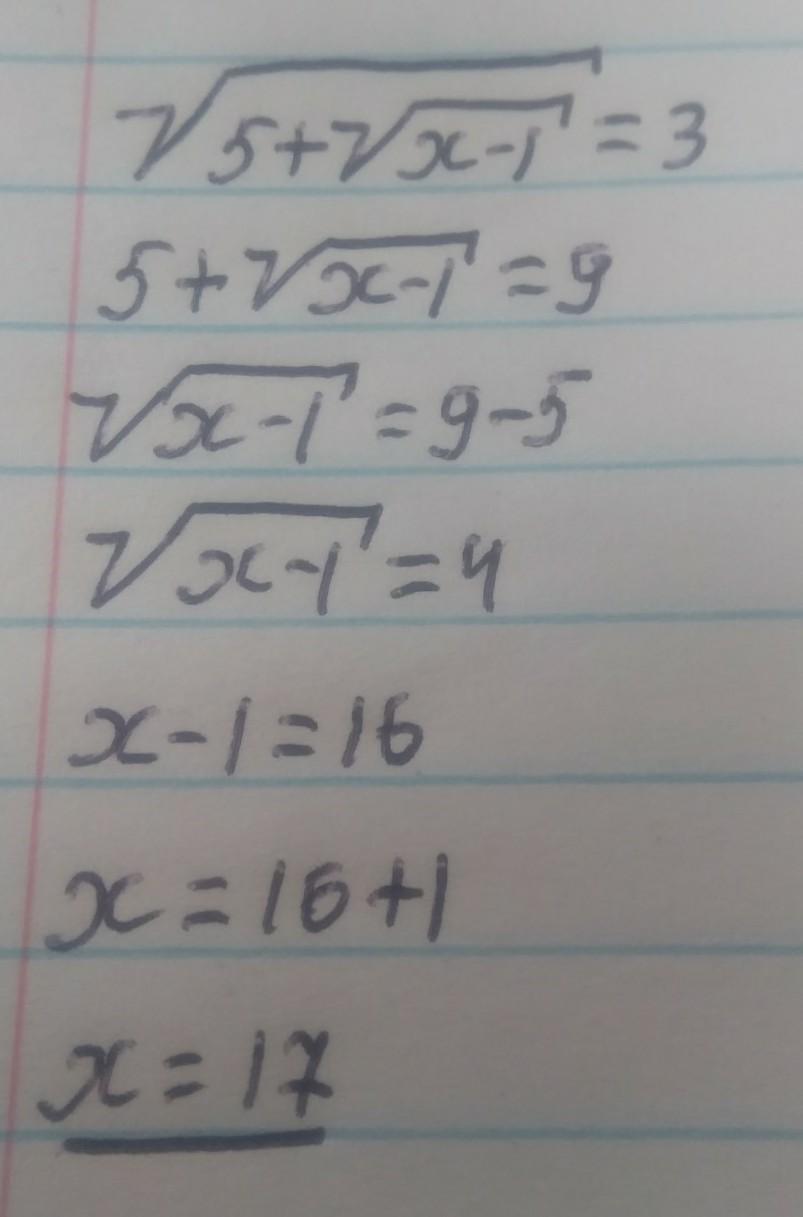 √(5+√(x-1)) = 3
5+√(x-1) = 9
√(x-1) = 9-5
√(x-1) = 4
x-1 = 16
x = 16+1
x = 17